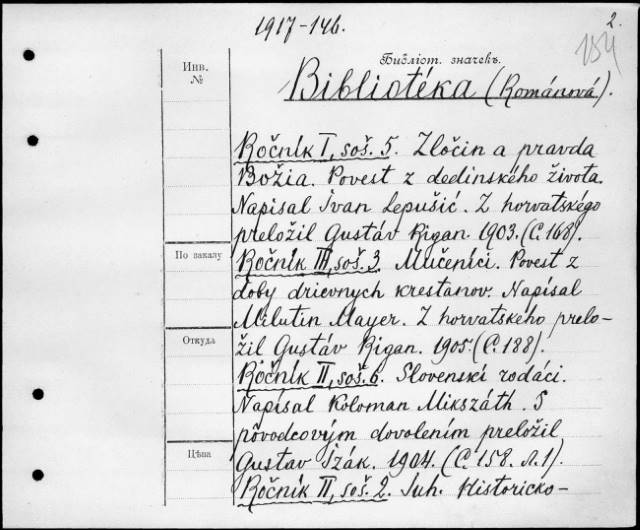 1917-146.
2.
184
Библіот. значекъ.
Инв.
№
Bibliotéka (Románová).
Ročník I, soš. 5. Zločin a pravda
Božia. Povest z dedinského života.
Napísal Ivan Lepušić. Z horvatského
preložil Gustáv Rigan. 1903. (C. 168).
По заказу
Ročník III, soš. 3. Mučeníci. Povest z
doby drievnych krestanov. Napísal
Milutin Mayer. Z horvatského prelo-
Откуда
žil Gustáv Rigan. 1905. (C. 188).
Ročník II, soš. 6. Slovenskí rodáci.
Napísal Koloman Mikszáth. S
pôvodcovým dovolením preložil
Цѣна
Gustav Izák. 1904. (C. 158. л. 1).
Ročník II, soš. 2. Juh. Historicko-